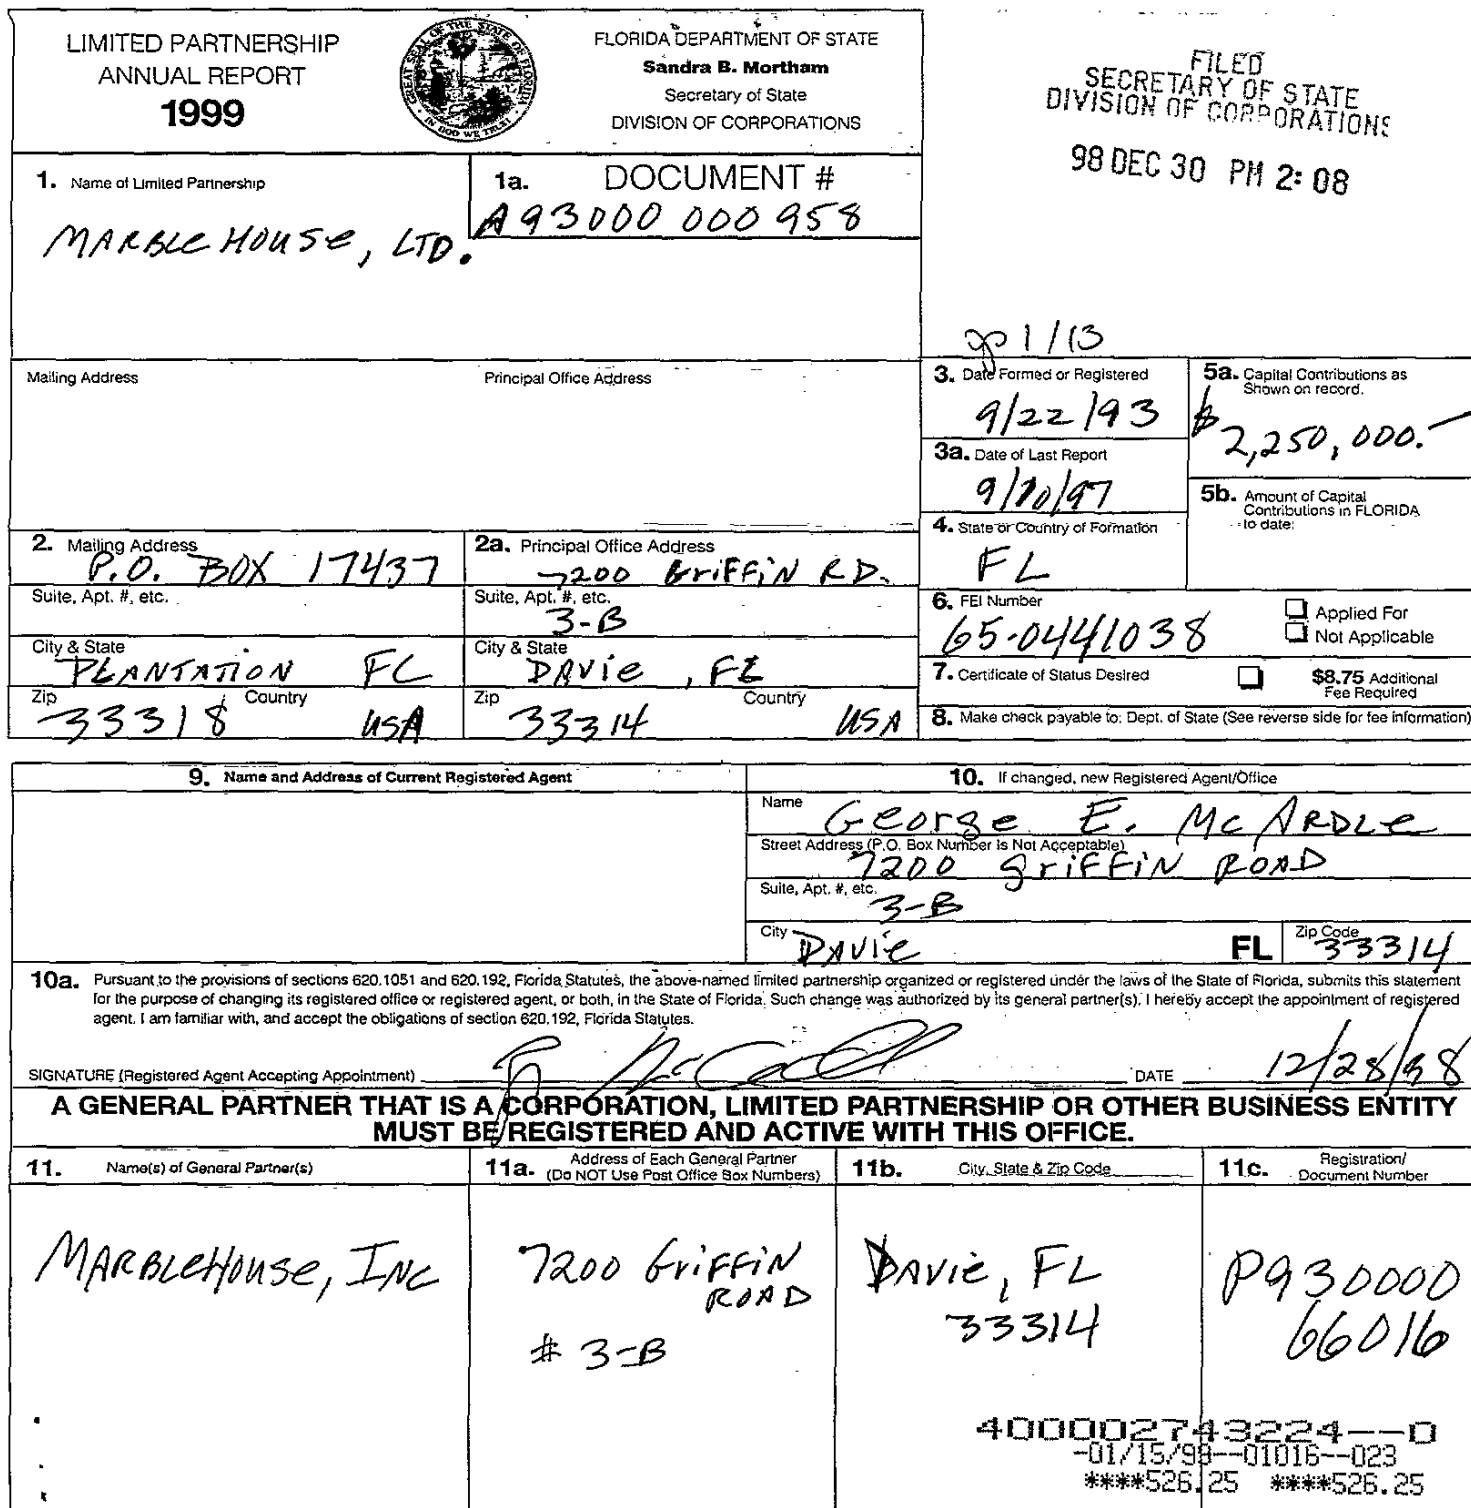 LIMITED PARTNERSHIP
ANNUAL REPORT
1999
GREAT SEAL OF THE STATE OF FLORIDA
IN GOD WE TRUST
FLORIDA DEPARTMENT OF STATE
Sandra B. Mortham
Secretary of State
DIVISION OF CORPORATIONS
FILED
SECRETARY OF STATE
DIVISION OF CORPORATIONS
98 DEC 30 PM 2:08
1. Name of Limited Partnership
MARBLEHOUSE, LTD.
1a. DOCUMENT #
A93000 000 958
1/13
Mailing Address
Principal Office Address
3. Date Formed or Registered
9/22/93
5a. Capital Contributions as
Shown on record.
$2,250,000.—
3a. Date of Last Report
9/10/97
5b. Amount of Capital
Contributions in FLORIDA
to date:
4. State or Country of Formation
FL
2. Mailing Address
P.O. BOX 17437
2a. Principal Office Address
7200 GriFFiN RD.
Suite, Apt. #, etc.
Suite, Apt. #, etc.
3-B
6. FEI Number
65-0441038
Applied For
Not Applicable
City & State
PLANTATION FL
City & State
DAViE, FL
7. Certificate of Status Desired
$8.75 Additional
Fee Required
Zip Country
33318 USA
Zip Country
33314 USA
8. Make check payable to: Dept. of State (See reverse side for fee information)
9. Name and Address of Current Registered Agent
10. If changed, new Registered Agent/Office
Name George E. McARDLe
Street Address (P.O. Box Number is Not Acceptable)
7200 griFFiN ROAD
Suite, Apt. #, etc.
3-B
City DAViE FL Zip Code 33314
10a. Pursuant to the provisions of sections 620.1051 and 620.192, Florida Statutes, the above-named limited partnership organized or registered under the laws of the State of Florida, submits this statement
for the purpose of changing its registered office or registered agent, or both, in the State of Florida. Such change was authorized by its general partner(s). I hereby accept the appointment of registered
agent. I am familiar with, and accept the obligations of section 620.192, Florida Statutes.
SIGNATURE (Registered Agent Accepting Appointment) DATE 12/28/98
A GENERAL PARTNER THAT IS A CORPORATION, LIMITED PARTNERSHIP OR OTHER BUSINESS ENTITY
MUST BE REGISTERED AND ACTIVE WITH THIS OFFICE.
11. Name(s) of General Partner(s)
11a. Address of Each General Partner
(Do NOT Use Post Office Box Numbers)
11b. City, State & Zip Code
11c. Registration/
Document Number
MARBLEHOUSE, INC
7200 GriFFiN
ROAD
# 3-B
DAViE, FL
33314
P930000
66016
400002743224--0
-01/15/99--01016--023
****526.25 ****526.25